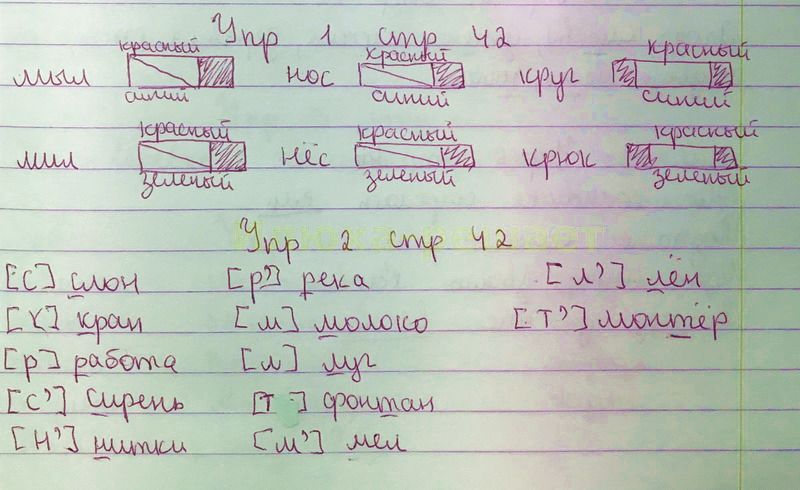 Упр 1 стр 42
красный красный красный
мыл нос круг
синий синий синий
красный красный красный
мил нёс крюк
зеленый зеленый зеленый
Упр 2 стр 42
[С] слон [р'] река [л'] лён
[К] кран [м] молоко [т'] монтёр
[р] работа [л] луг
[с'] сирень [т ] фонтан
[н'] нитки [м'] мел